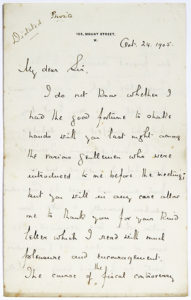 Private
Dictated
105, MOUNT STREET,
W.
Oct. 24. 1905.
My dear Sir,
I do not know whether I
had the good fortune to shake
hands with you last night among
the various gentlemen who were
introduced to me before the meeting;
but you will in any case allow
me to thank you for your kind
letter which I read with much
pleasure and encouragement.
The course of the fiscal controversy